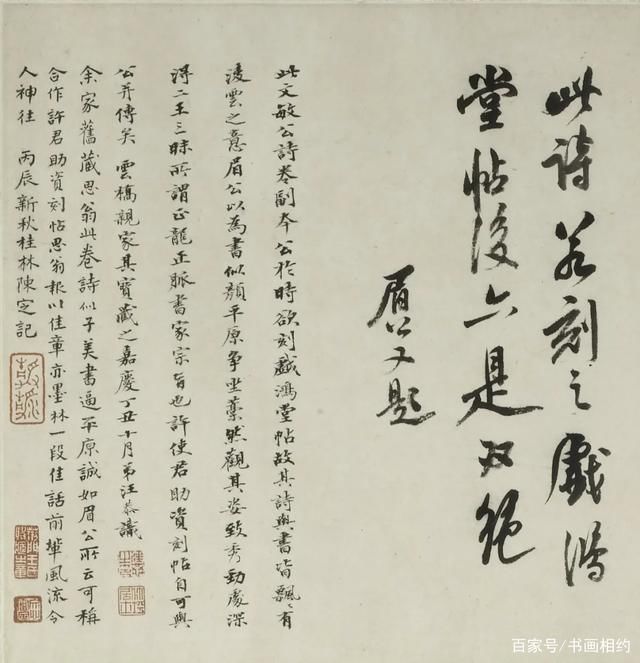 此詩若刻之戲鴻
堂帖後亦是双絕
眉公又題
此文敏公詩卷副本公於時欲刻戲鴻堂帖故其詩與書皆飄〻有
淩雲之意眉公以為書似顏平原爭坐藁然觀其姿致秀勁處深
得二王三昧所謂正龍正脈書家宗旨也許使君助資刻帖自可與
公并傳矣 雲橋親家其寶藏之嘉慶丁丑十月弟汪恭識
余家舊藏思翁此卷詩似子美書逼平原誠如眉公所云可稱
合作許君助資刻帖思翁報以佳章亦墨林一段佳話前輩風流令
人神往 丙辰新秋桂林陳定記
百家号/书画相约